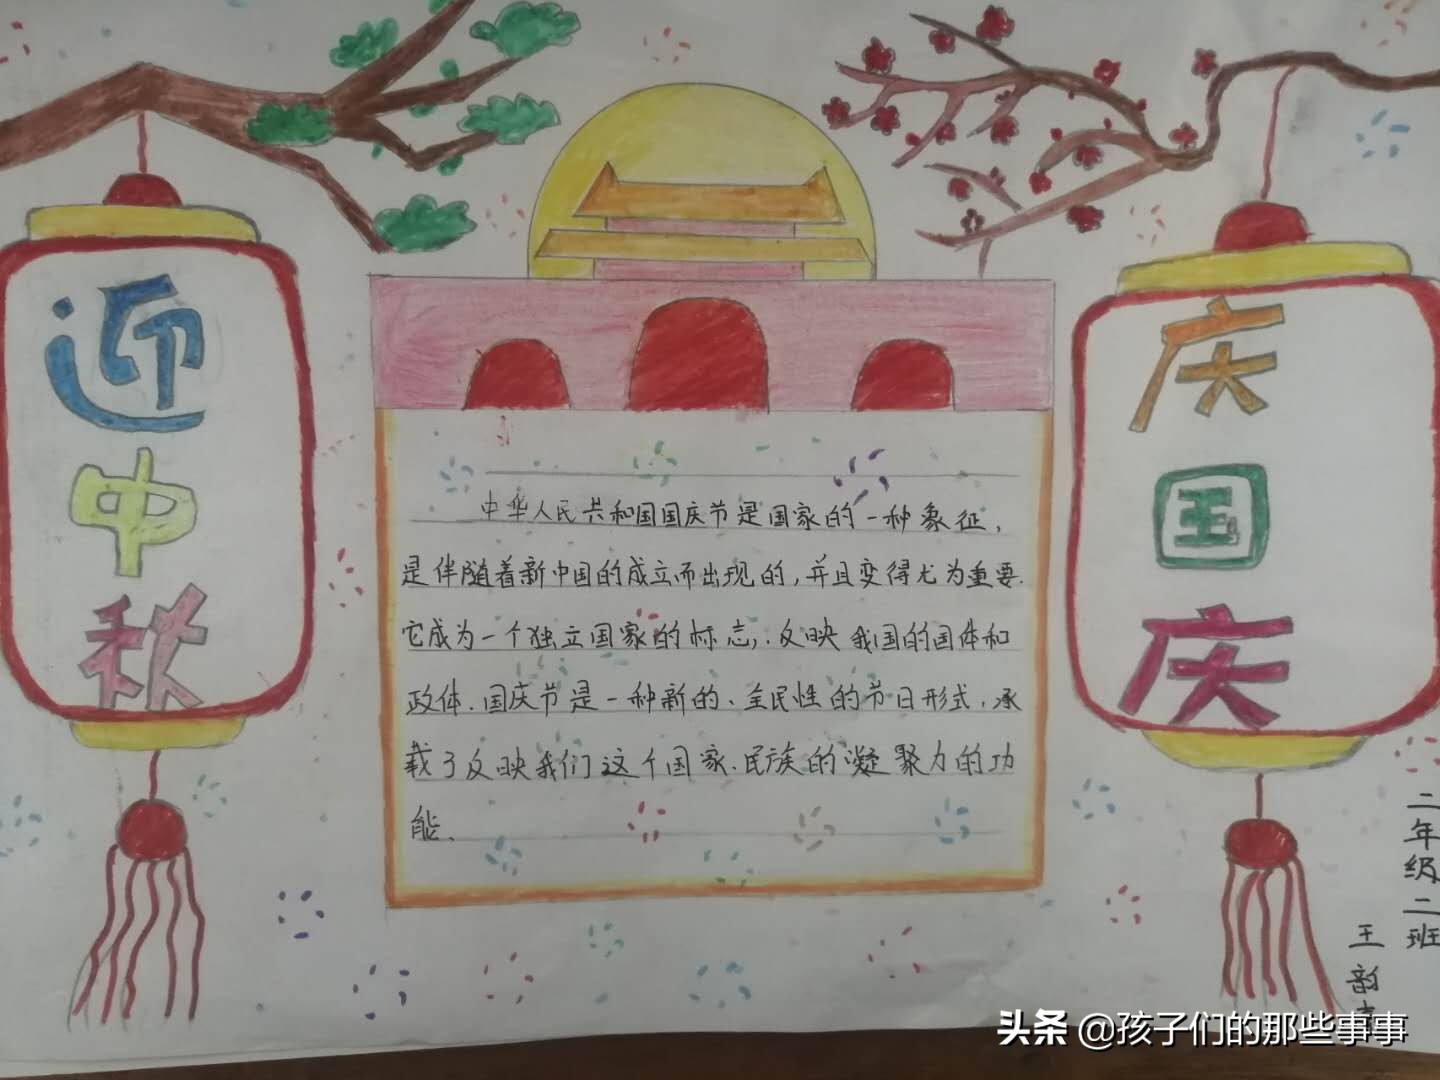 迎中秋
庆国庆
中华人民共和国国庆节是国家的一种象征，
是伴随着新中国的成立而出现的，并且变得尤为重要.
它成为一个独立国家的标志，.反映我国的国体和
政体.国庆节是一种新的、全民性的节日形式，承
载了反映我们这个国家.民族的凝聚力的功
能、
二年级二班
王韵
头条 @孩子们的那些事事